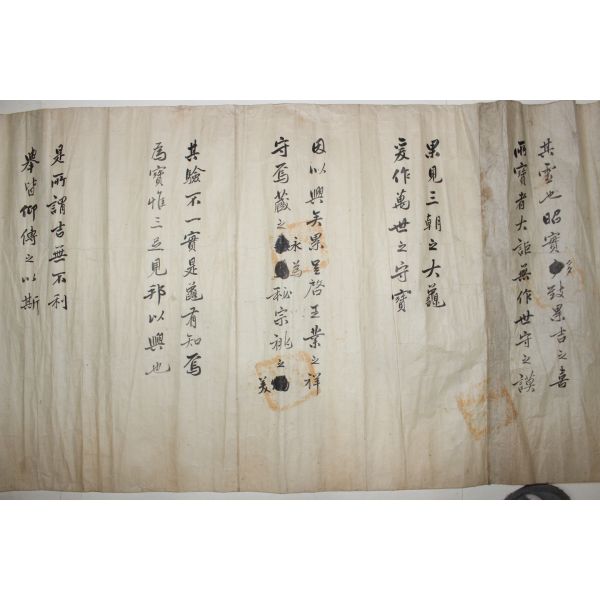 其靈也昭實多致果吉之喜
所寶者大詎無作世守之謨
果見三朝之大龜
爰作萬世之守寶
因以興矣果呈啓王業之祥
守焉藏之永為秘宗祧之美
其驗不一實是龜有知焉
為寶惟三足見邦以興也
是所謂吉無不利
舉皆仰傳之以斯